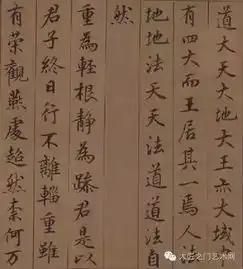 道大天大地大王亦大域中
有四大而王居其一焉人法
地地法天天法道道法自
然
重為輕根靜為躁君是以
君子終日行不離輜重雖
有榮觀燕處超然柰何万
大匠之门艺术网